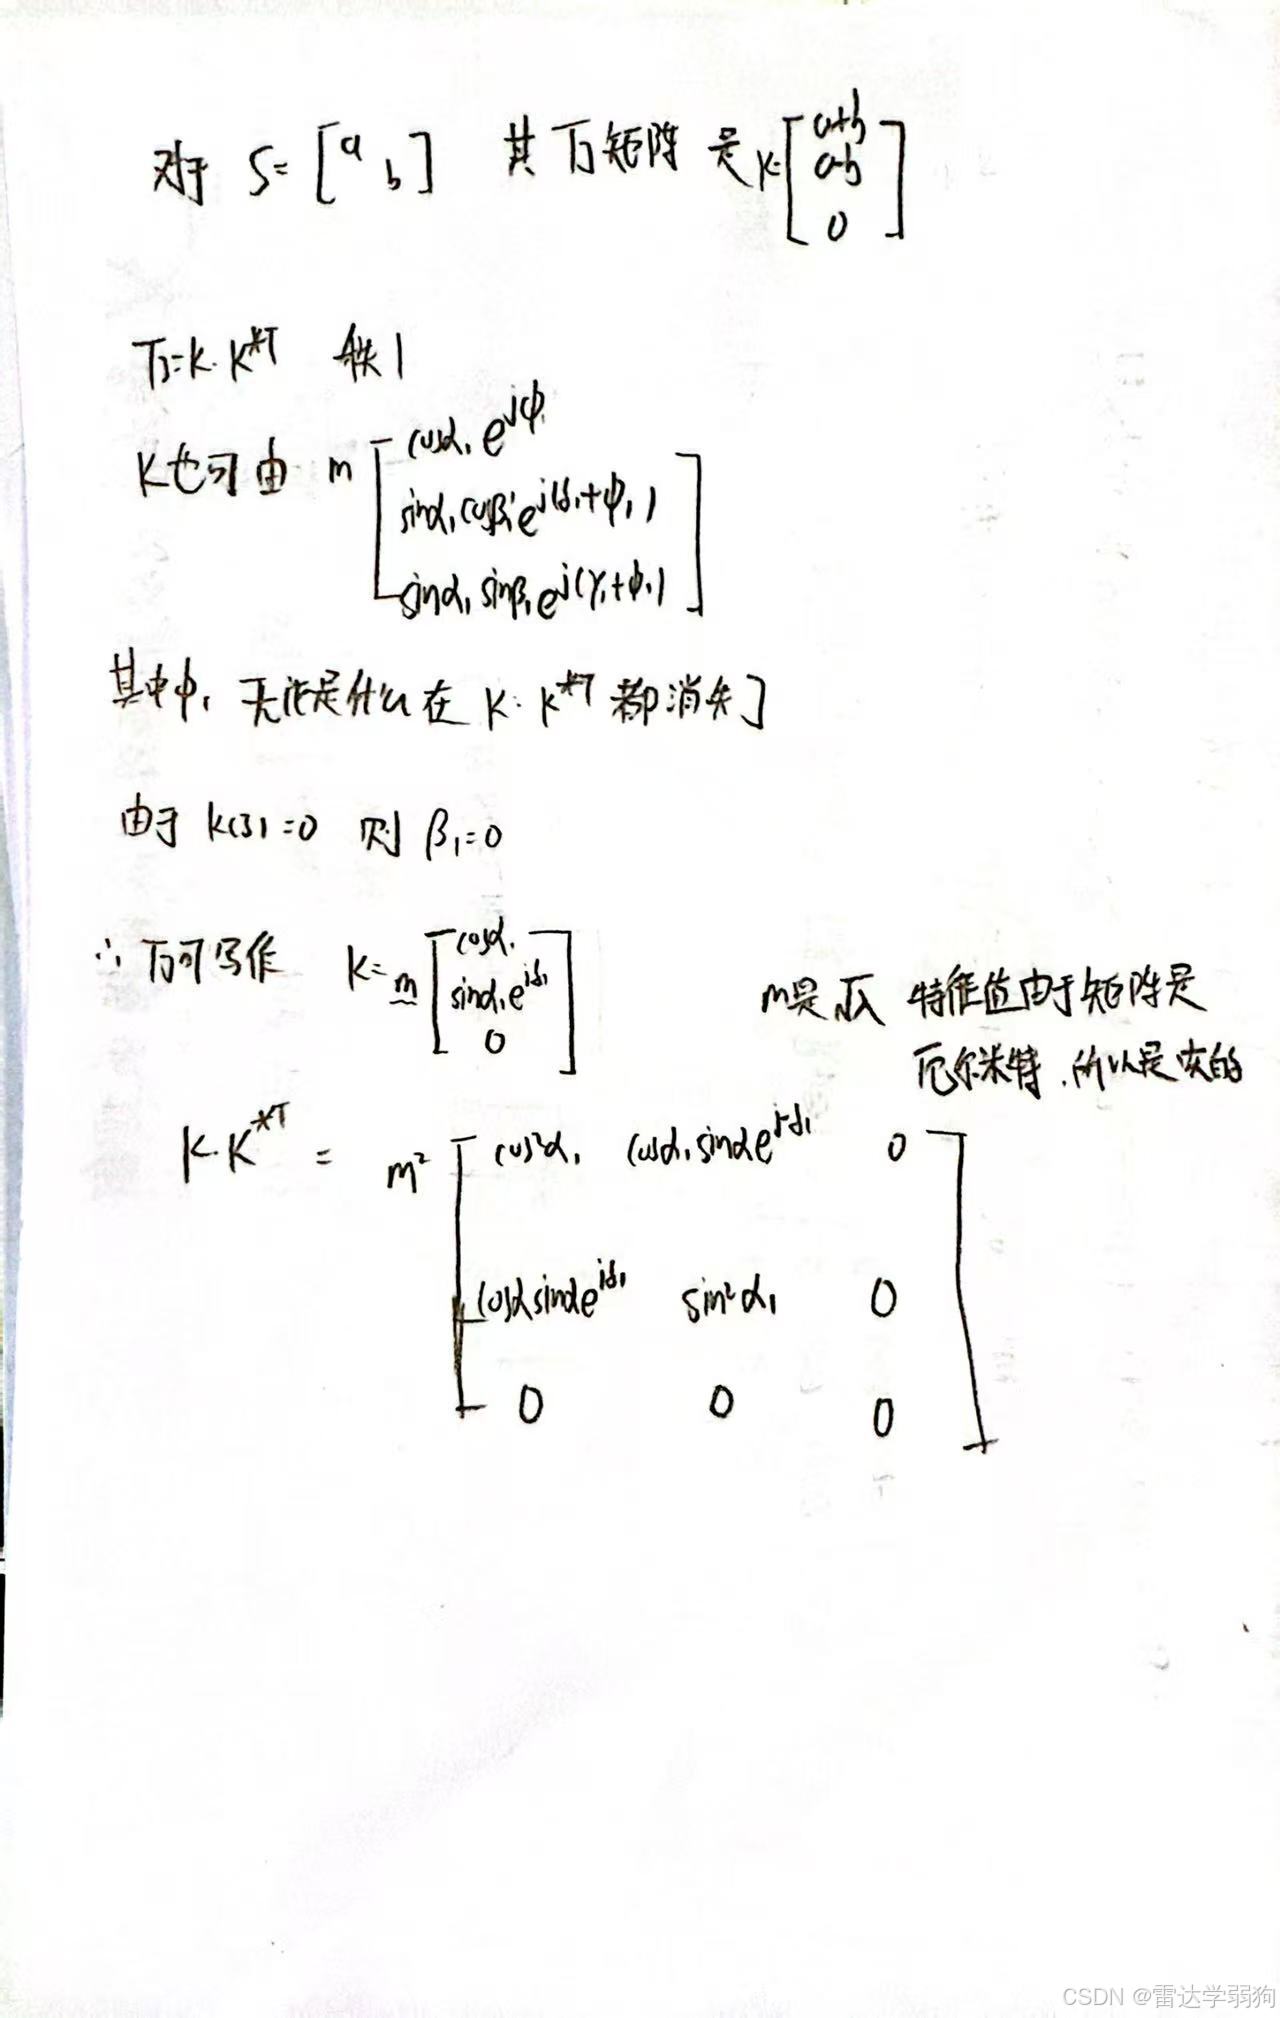 对于 S= [a b] 其T3矩阵 是 K= [a+b a-b 0]
T3=K·K*T 秩1
K也可由 m [cosα₁e^jφ₁
sinα₁cosβ₁e^j(δ₁+φ₁)
sinα₁sinβ₁e^j(γ₁+φ₁)]
其中φ₁ 无论是什么在 K·K*T 都消失了
由于 K(3)=0 则 β₁=0
∴ T3可写作 K=m [cosα₁ sinα₁e^jδ₁ 0]
m是√λ 特征值由于矩阵是
厄尔米特,所以是实的
K·K*T = m² [cos²α₁ cosα₁sinαe^j-δ₁ 0
cosαsinαe^jδ₁ sin²α₁ 0
0 0 0]
CSDN @雷达学弱狗